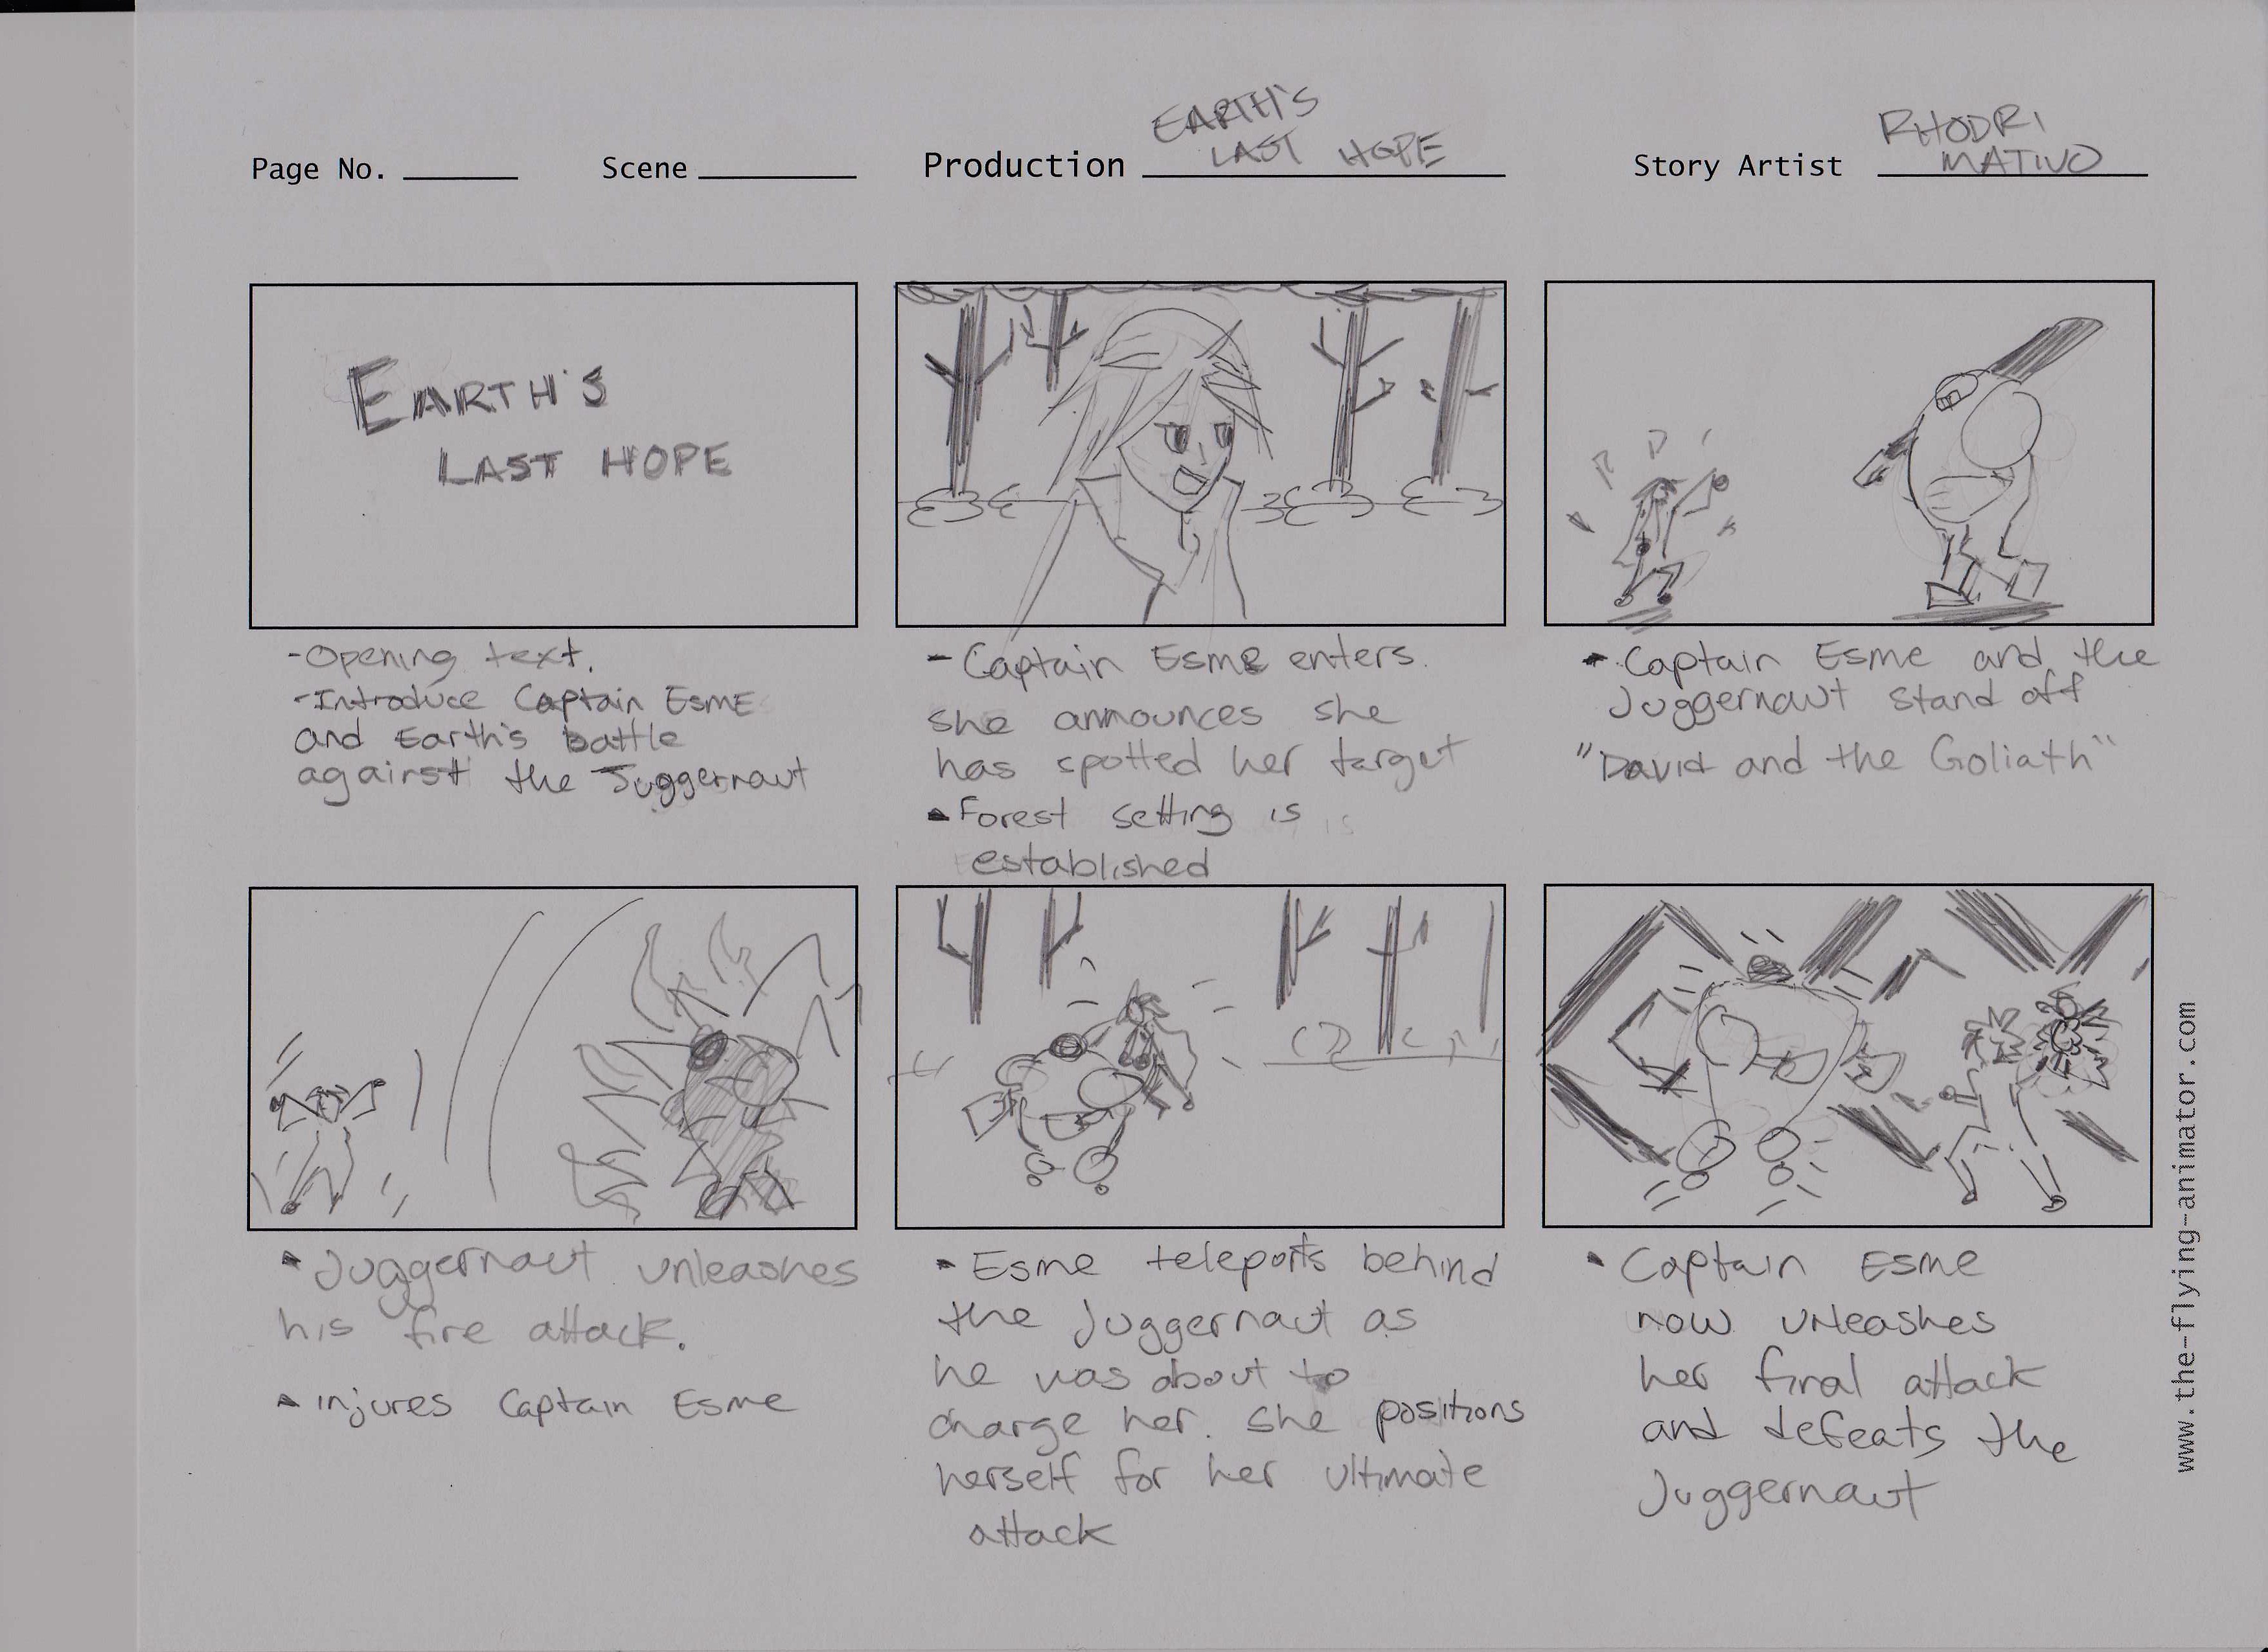 Page No.
Scene
Production EARTH'S
LAST HOPE
Story Artist RHODRI
MATIVO
EARTH'S
LAST HOPE
-Opening text.
-Introduce Captain ESME
and Earth's battle
against the Juggernaut
- Captain Esme enters.
she announces she
has spotted her target
- Forest setting is is
established
- Captain Esme and the
Juggernaut stand off
"David and the Goliath"
- Juggernaut unleashes
his fire attack.
- injures Captain Esme
- Esme teleports behind
the Juggernaut as
he was about to
charge her. she positions
herself for her ultimate
attack
- Captain Esme
now unleashes
her final attack
and defeats the
Juggernaut
www.the-flying-animator.com